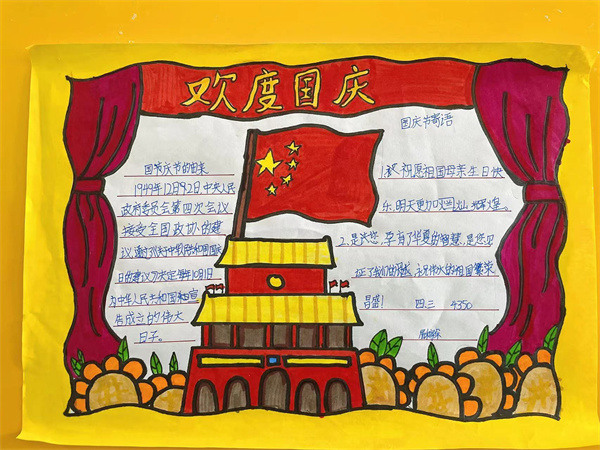 欢度国庆
国庆节的由来
1949年12月2日,中央人民
政府委员会第四次会议
接受全国政协的建
议
日的建议,决定每年10月1日
为中华人民共和国宣
告成立的伟大
日子。
国庆节寄语
1.祝愿祖国母亲生日快
乐,明天更加灿烂辉煌。
2.是您,孕育了华夏的智慧,是您见
证了我们的成长,永伟大的祖国繁荣
昌盛!
四.三 4350